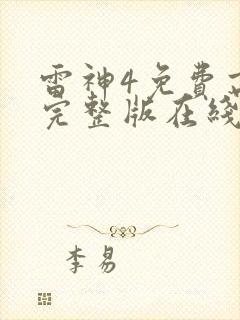 雷神4免費
完整版在綫
李易